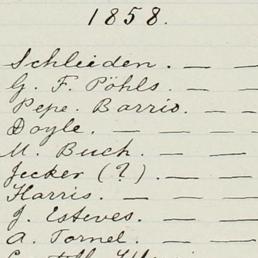 1858.
Schleiden. — —
G. F. Pöhls. — —
Pepe. Barrio. — —
Doyle. — — —
M. Buch. — —
Jecker (?) — —
Harris. — — —
J. Esteves. — —
A. Tornel. — —